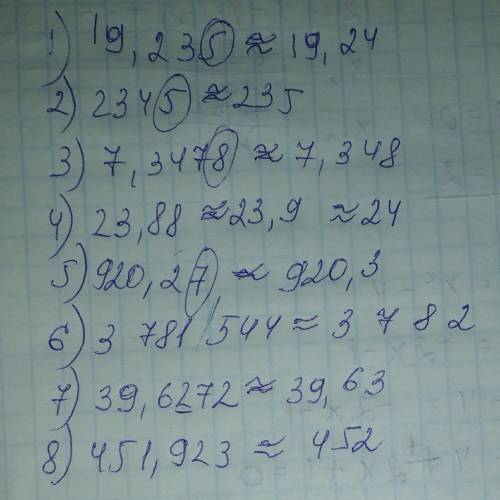 1) 19,235 ≈ 19,24
2) 2345 ≈ 235
3) 7,3478 ≈ 7,348
4) 23,88 ≈ 23,9 ≈ 24
5) 920,27, ≈ 920,3
6) 3 781 544 ≈ 3 7 8 2
7) 39,6272 ≈ 39,63
8) 451,923 ≈ 452